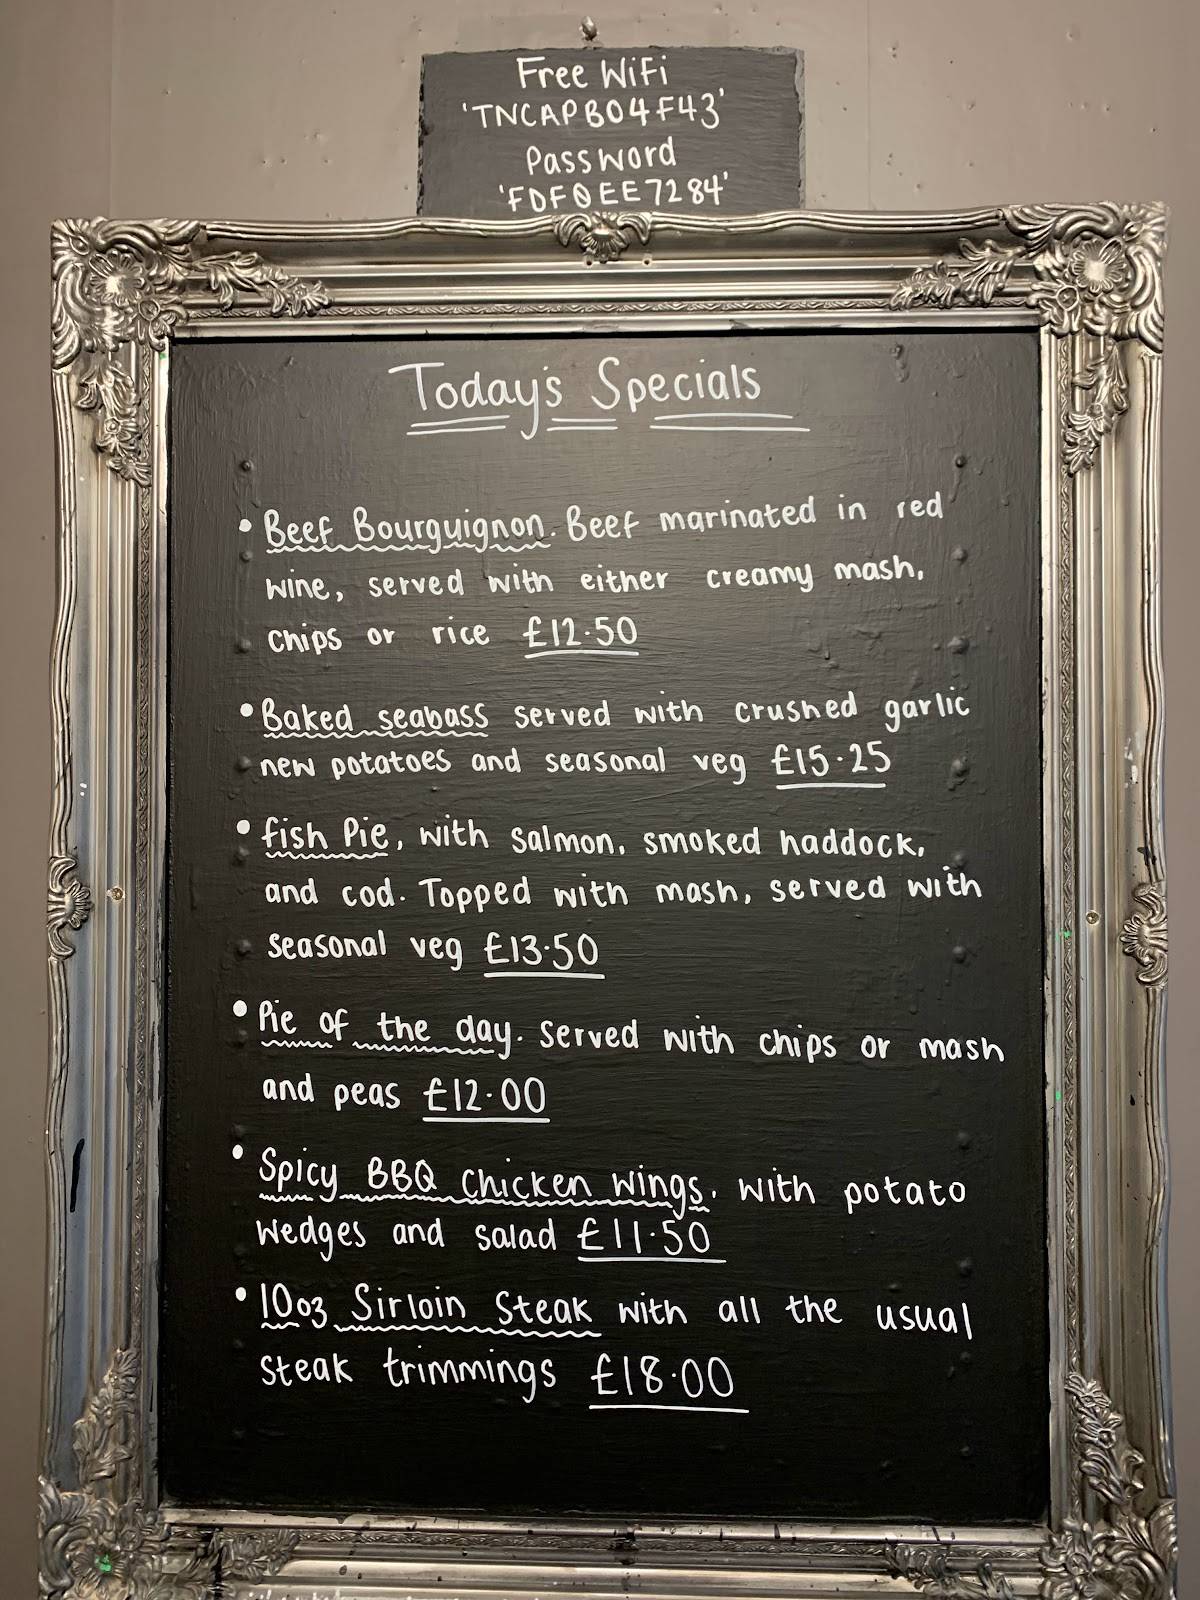 Free WiFi
'TNCAPB04F43'
Password
'FDF0EE7284'
Today's Specials
• Beef Bourguignon. Beef marinated in red
wine, served with either creamy mash,
chips or rice £12.50
• Baked seabass served with crushed garlic
new potatoes and seasonal veg £15.25
• fish Pie, with salmon, smoked haddock,
and cod. Topped with mash, served with
seasonal veg £13.50
• Pie of the day. Served with chips or mash
and peas £12.00
• Spicy BBQ chicken wings. with potato
wedges and salad £11.50
• 10oz Sirloin Steak with all the usual
steak trimmings £18.00